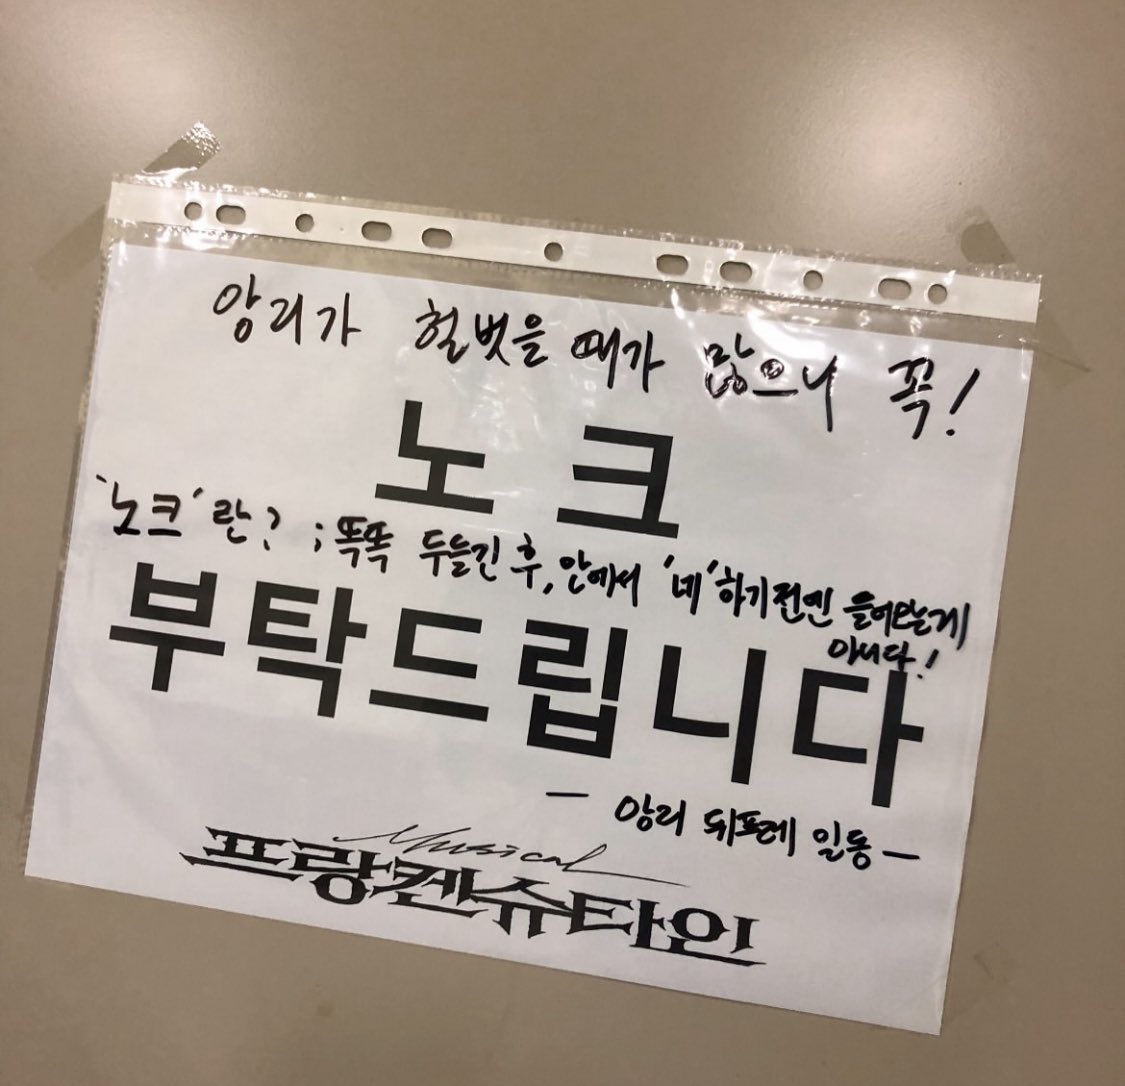 앙리가 헐벗을 때가 많으니 꼭!
노크
'노크'란? ; 똑똑 두들긴 후, 안에서 '네' 하기전엔 들어오는게
아니다!
부탁드립니다
— 앙리 뒤프레 일동 —
Musical
프랑켄슈타인